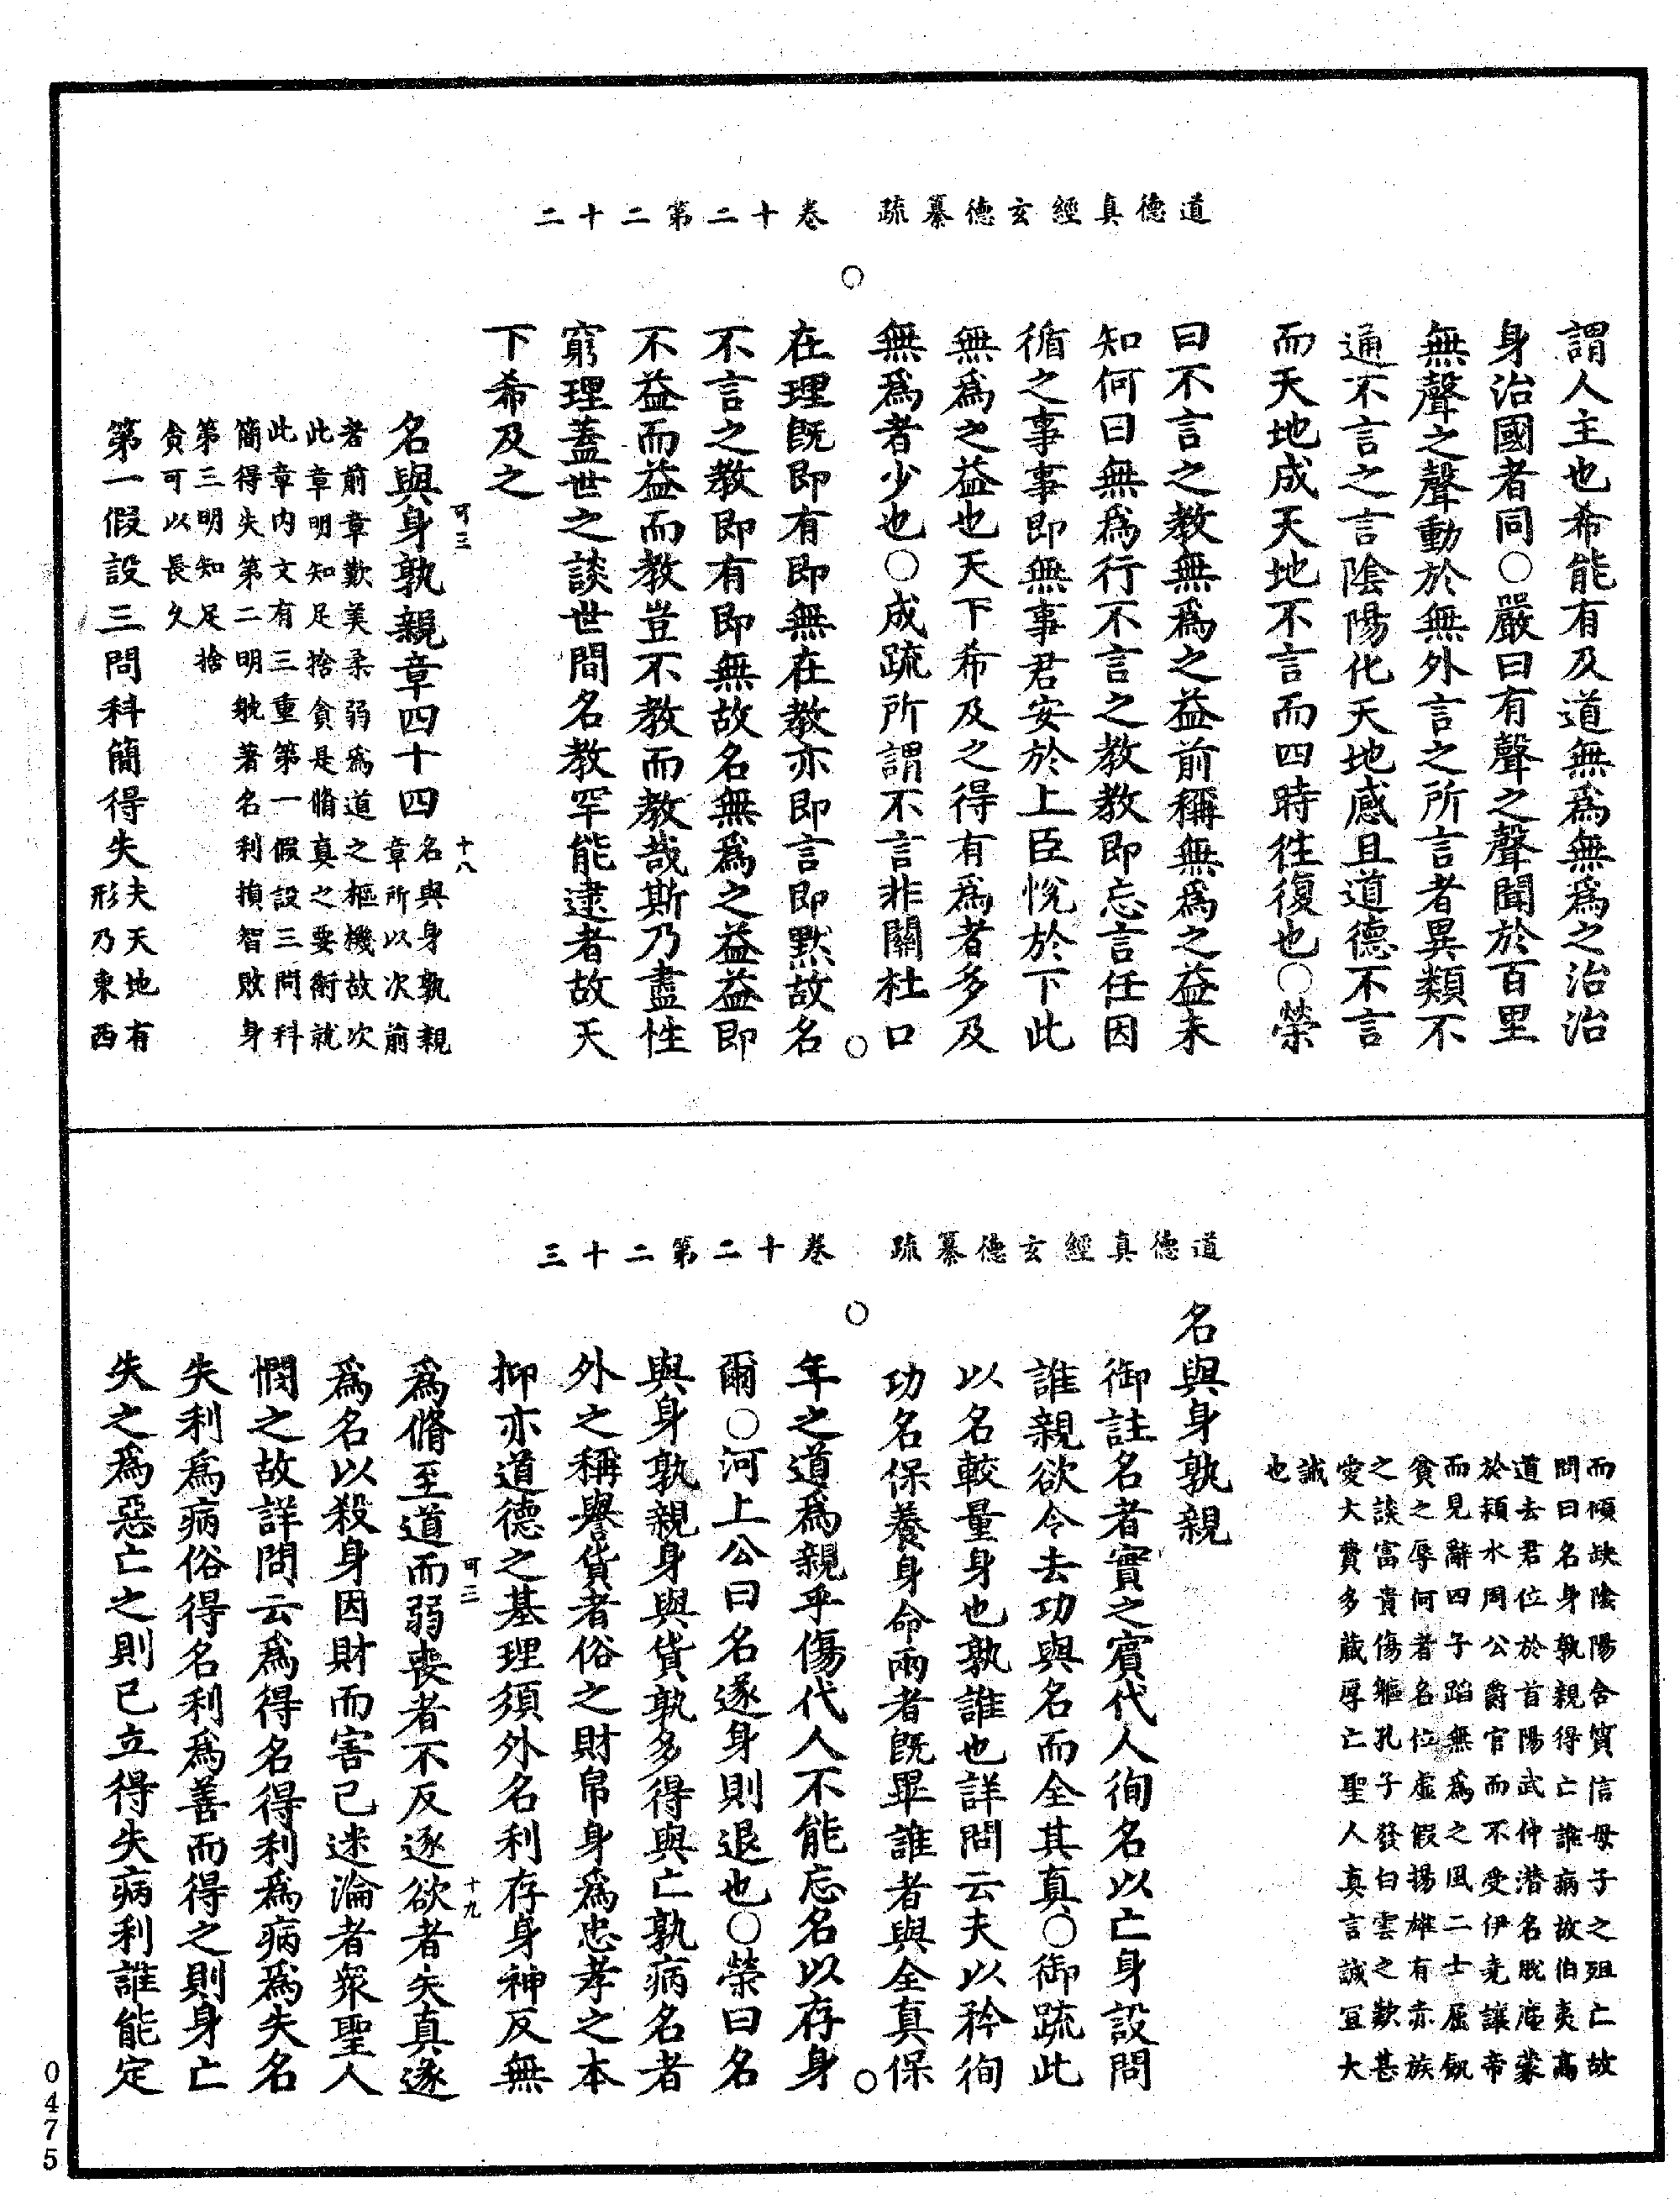 道德真經玄德纂疏　卷十二第二十二
謂人主也希能有及道無為無為之治治
身治國者同○嚴曰有聲之聲聞於百里
無聲之聲動於無外言之所言者異類不
通不言之言陰陽化天地感且道德不言
而天地成天地不言而四時往復也○榮
曰不言之教無為之益前稱無為之益未
知何曰無為行不言之教教即忘言任因
循之事事即無事君安於上臣悅於下此
無為之益也天下希及之得有為者多及
無為者少也○成疏所謂不言非關杜口
在理既即有即無在教亦即言即默故名
不言之教即有即無故名無為之益益即
不益而益而教豈不教而教哉斯乃盡性
窮理蓋世之談世間名教罕能逮者故天
下希及之
可三
十八
名與身孰親章四十四
名與身孰親
章所以次前
者前章歎美柔弱為道之樞機故次
此章明知足捨貪是脩真之要衝就
此章內文有三重第一假設三問科
簡得失第二明躭著名利損智敗身
第三明知足捨
貪可以長久
第一假設三問科簡得失
夫天地有
形乃東西
道德真經玄德纂疏　卷十二第二十三
而傾缺陰陽含質信母子之殂亡故
問曰名身孰親得亡誰病故伯夷高
道去君位於首陽武仲潛名脫庵蒙
於潁水周公爵官而不受伊堯讓帝
而見辭四子蹈無為之風二士屈飢
貧之辱何者名位虛假揚雄有赤族
之談富貴傷軀孔子發白雲之歎甚
愛大費多藏厚亡聖人真言誠宜大
誡
也
名與身孰親
御註名者實之賓代人徇名以亡身設問
誰親欲令去功與名而全其真○御疏此
以名較量身也孰誰也詳問云夫以矜徇
功名保養身命兩者既畢誰者與全真保
年之道為親乎傷代人不能忘名以存身
爾○河上公曰名遂身則退也○榮曰名
與身孰親身與貨孰多得與亡孰病名者
外之稱譽貨者俗之財帛身為忠孝之本
抑亦道德之基理須外名利存身神反無
可三
十九
為脩至道而弱喪者不反逐欲者失真遂
為名以殺身因財而害己迷淪者衆聖人
憫之故詳問云為得名得利為病為失名
失利為病俗得名利為善而得之則身亡
失之為惡亡之則己立得失病利誰能定
0475